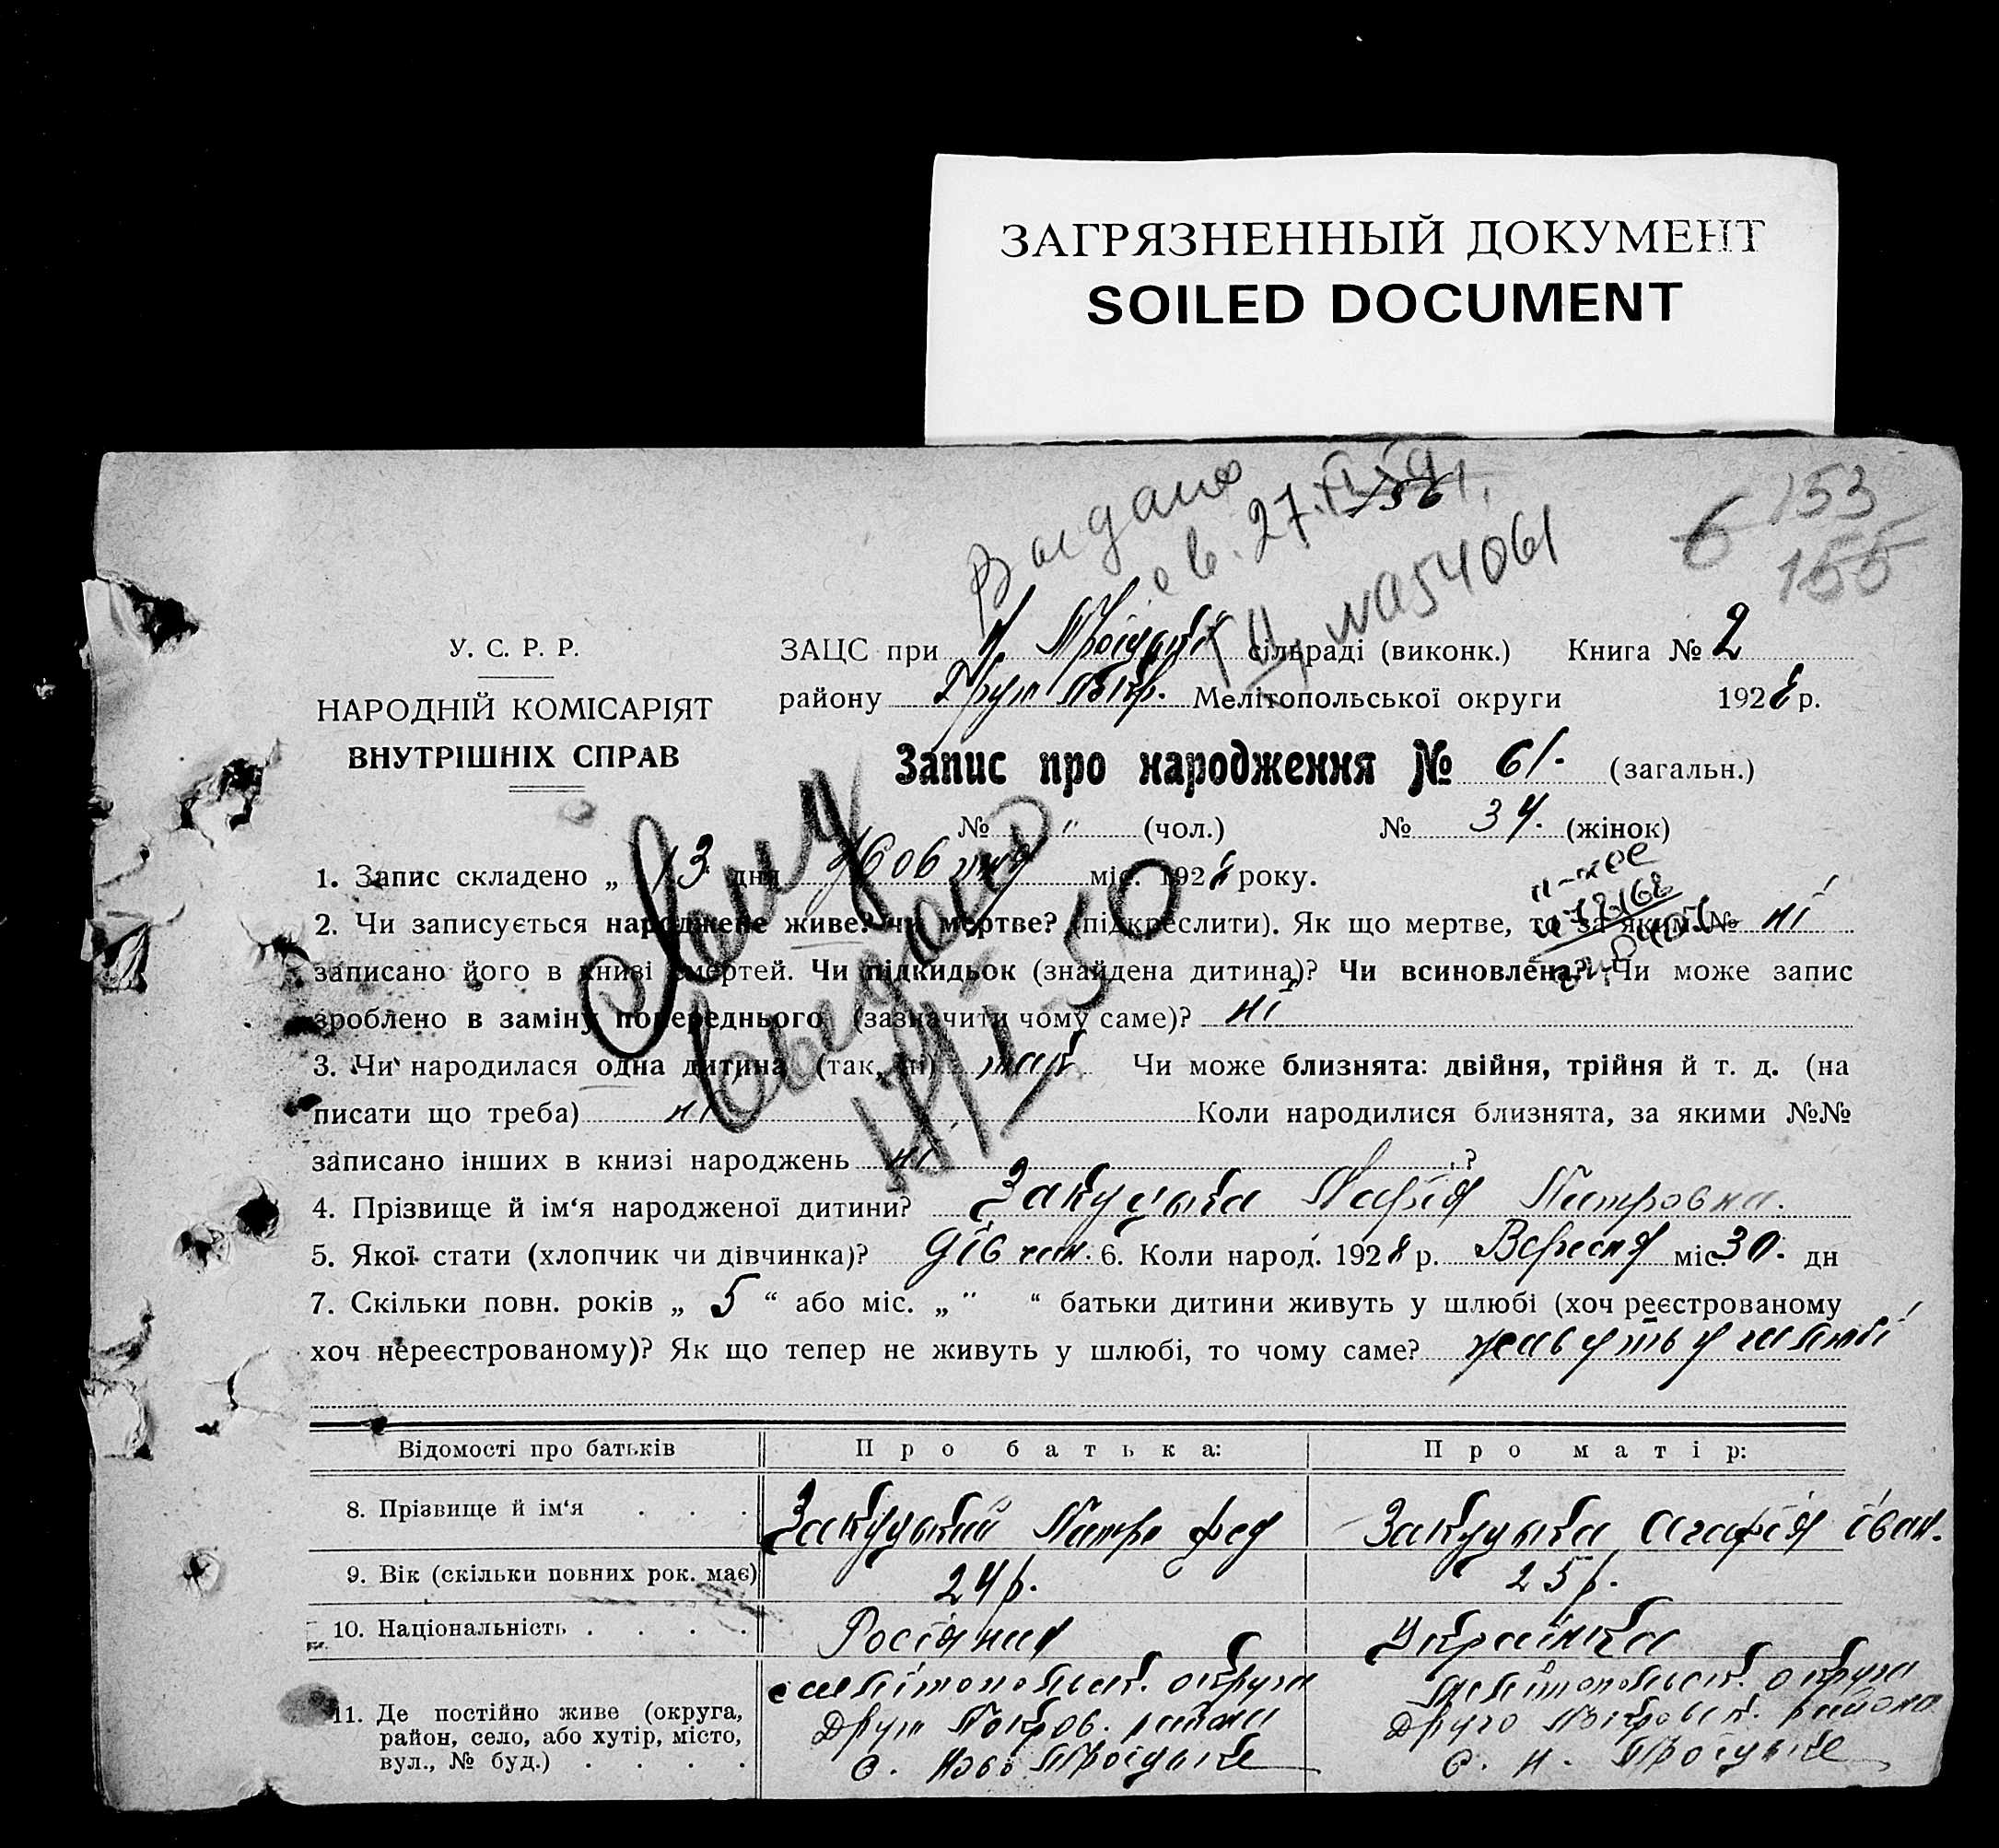 ЗАГРЯЗНЕННЫЙ ДОКУМЕНТ
SOILED DOCUMENT
Выдано
св. 27.
№ 054061
6 153
155
У. С. Р. Р.
НАРОДНІЙ КОМІСАРІЯТ
ВНУТРІШНІХ СПРАВ
ЗАЦС при Н Троіцькі сільраді (виконк.) Книга № 2
району Друг Покр. Мелітопольської округи 1928 р.
Запис про народження № 61. (загальн.)
№ " (чол.) № 34. (жінок)
1. Запис складено „ 13 дня Жовтня міс. 1928 року.
2. Чи записується народжене живе? чи мертве? (підкреслити). Як що мертве, то за яким № ні
записано його в книзі смертей. Чи підкидьок (знайдена дитина)? Чи всиновлена? Чи може запис
зроблено в заміну попереднього (зазначити чому саме)? ні
3. Чи народилася одна дитина (так, ні) так Чи може близнята: двійня, трійня й т. д. (на
писати що треба) ні Коли народилися близнята, за якими №№
записано інших в книзі народжень ні ?
4. Прізвище й ім‘я народженої дитини? Закуцька Марія Питровна.
5. Якої стати (хлопчик чи дівчинка)? дівчин. 6. Коли народ. 1928 р. Вересня міс. 30. дн
7. Скільки повн. років „ 5 “ або міс. „ " “ батьки дитини живуть у шлюбі (хоч реєстрованому
хоч нереєстрованому)? Як що тепер не живуть у шлюбі, то чому саме? живуть у шлюбі
выдано
50
Відомості про батьків Про батька: Про матір:
8. Прізвище й ім‘я . . . Закуцький Питро Фед Закуцька Агафія Іван.
9. Вік (скільки повних рок. має) 24 р. 25 р.
10. Національність . . . . Росіянин Українка
11. Де постійно живе (округа, район, село, або хутір, місто, вул., № буд.) . . . .
Мелітопольськ. округи
Друг Покров. района
С. Ново Троіцьке
Мелітопольськ. округи
Друго Покровськ. района
С. Н. Троіцьке